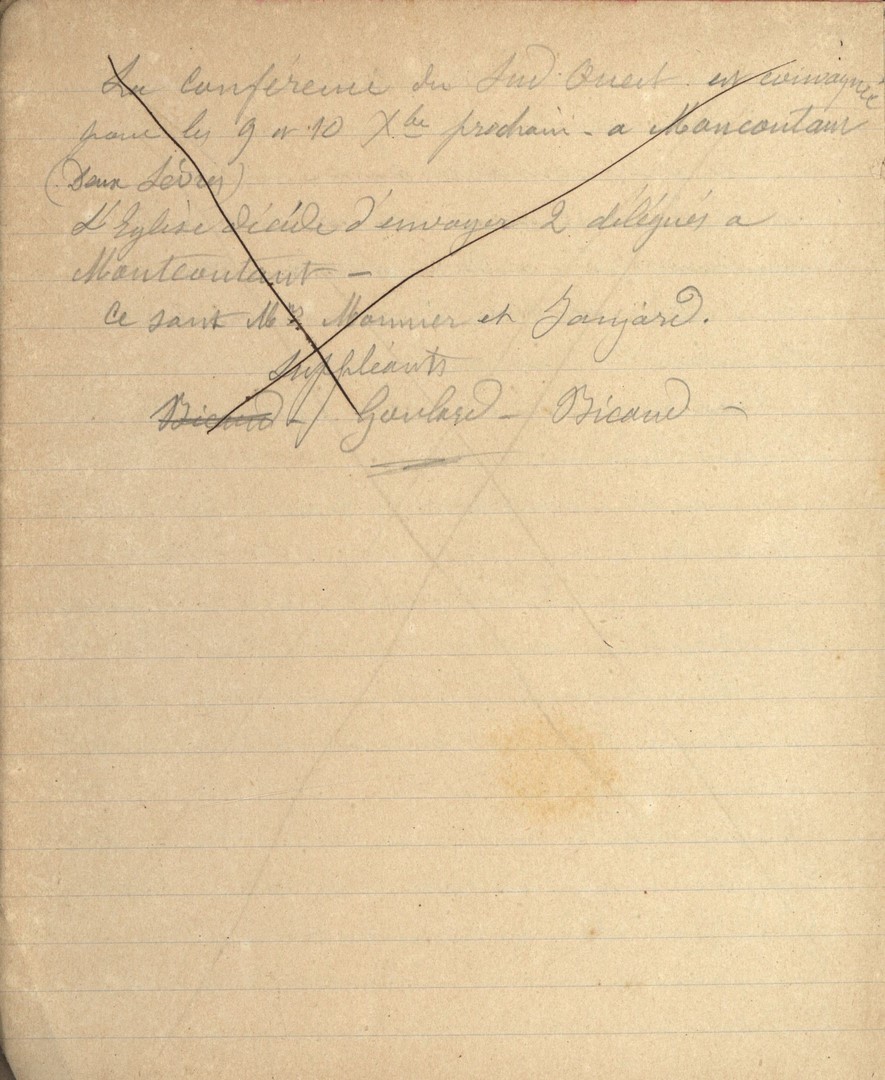 La Conférence du Sud Ouest est convoquée
pour les 9 et 10 Xbre prochain - a Moncoutant
(Deux Sèvres)
L'Eglise décide d'envoyer 2 délégués a
Montcoutant -
Ce sont Mrs Monnier et
Suppléants
Bicaud - Goulard - Bicaud -